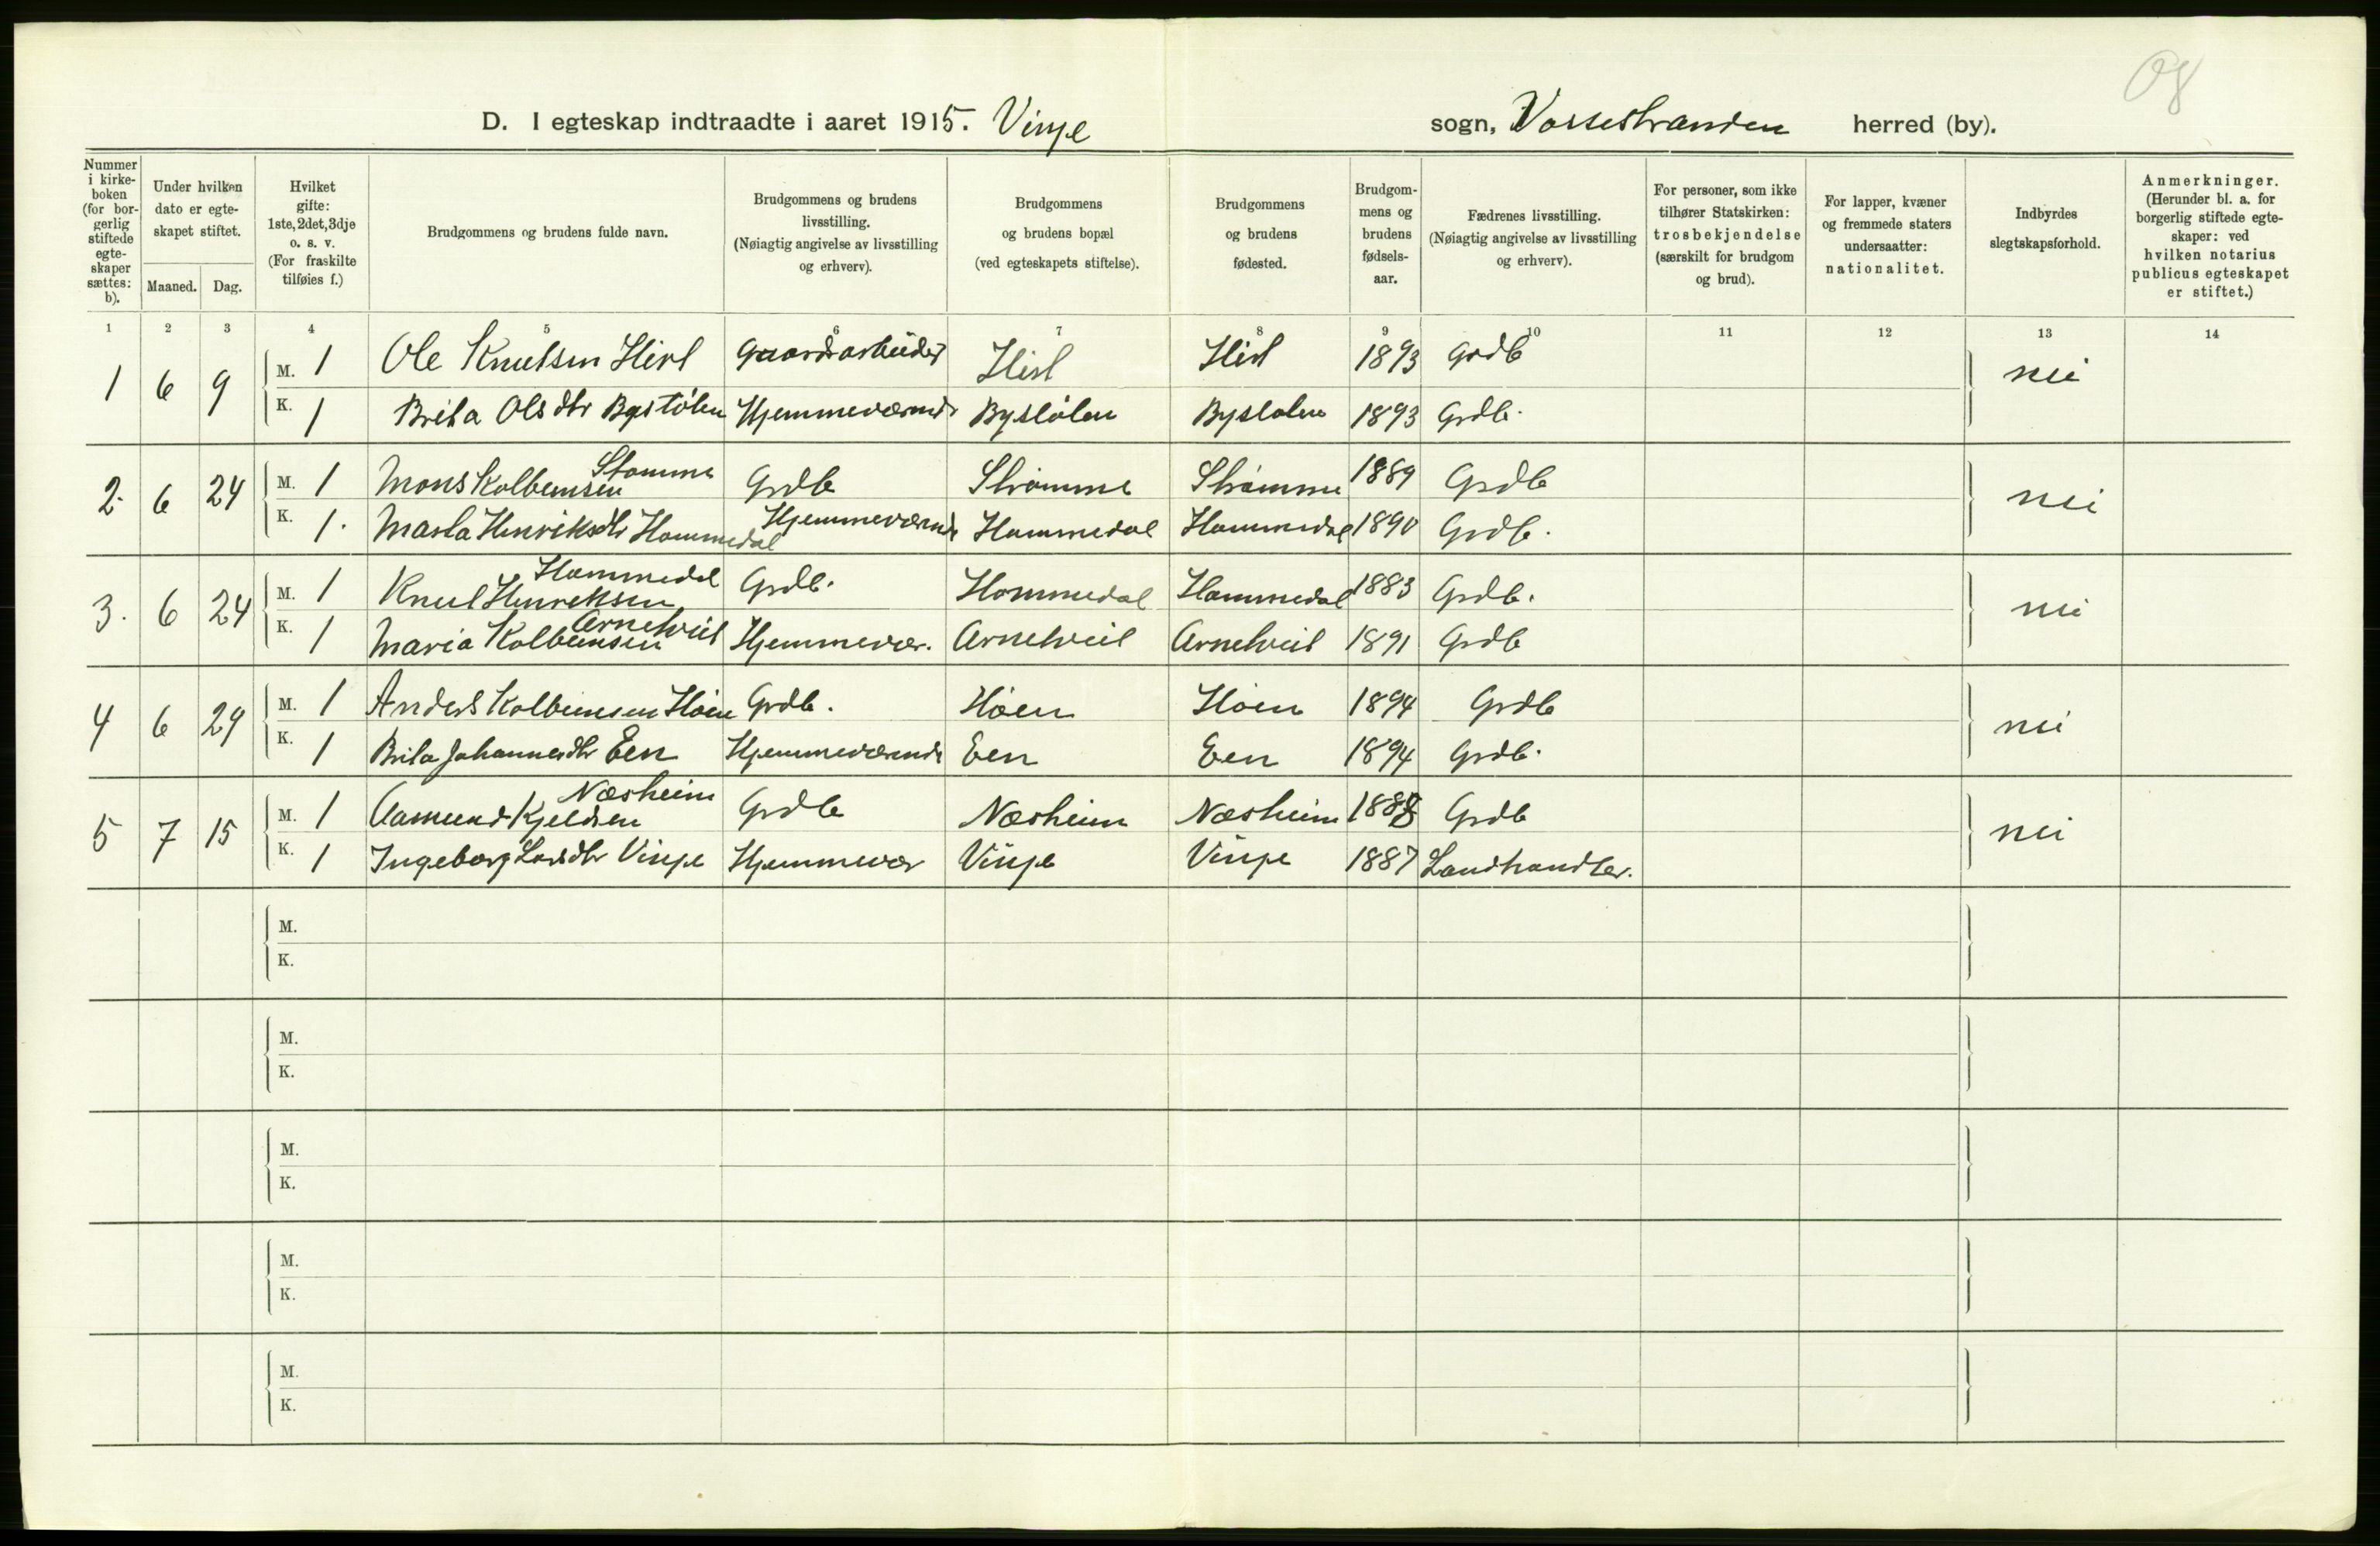 08
D. I egteskap indtraadte i aaret 1915. Vinje sogn, Vossestranden herred (by).
Nummer i kirke-boken (for bor-gerlig stiftede egte-skaper sættes: b).
Under hvilken dato er egte-skapet stiftet.
Maaned. Dag.
Hvilket gifte: 1ste, 2det, 3dje o. s. v. (For fraskilte tilføies f.)
Brudgommens og brudens fulde navn.
Brudgommens og brudens livsstilling. (Nøiagtig angivelse av livsstilling og erhverv).
Brudgommens og brudens bopæl (ved egteskapets stiftelse).
Brudgommens og brudens fødested.
Brudgom-mens og brudens fødsels-aar.
Fædrenes livsstilling. (Nøiagtig angivelse av livsstilling og erhverv).
For personer, som ikke tilhører Statskirken: trosbekjendelse (særskilt for brudgom og brud).
For lapper, kvæner og fremmede staters undersaatter: nationalitet.
Indbyrdes slegtskapsforhold.
Anmerkninger. (Herunder bl. a. for borgerlig stiftede egte-skaper: ved hvilken notarius publicus egteskapet er stiftet.)
1 2 3 4 5 6 7 8 9 10 11 12 13 14
1 6 9 M. 1 Ole Knutsen Hirt Gaardsarbeider Hirt Hirt 1893 Grdb nei
K. 1 Brita Olsdtr Bystölen Hjemmeværende Bystölen Bystölen 1893 Grdb.
2. 6 24 M. 1 Mons Kolbeinsen Strømme Grdb Strømme Strømme 1889 Grdb nei
K. 1. Marta Henriksdtr Hommedal Hjemmeværende Hommedal Hommedal 1890 Grdb.
3. 6 24 M. 1 Knut Henriksen Hommedal Grdb. Hommedal Hommedal 1883 Grdb. nei
K. 1 Maria Kolbeinsen Arnetveit Hjemmevær. Arnetveit Arnetveit 1891 Grdb
4 6 29 M. 1 Anders Kolbeinsen Høen Grdb. Høen Høen 1894 Grdb nei
K. 1 Brita Johannesdtr Een Hjemmeværende Een Een 1894 Grdb.
5 7 15 M. 1 Aamund Kjeldsen Næsheim Grdb Næsheim Næsheim 1888 Grdb nei
K. 1 Ingeborg Larsdtr Vinje Hjemmevær Vinje Vinje 1887 Landhandler.
M.
K.
M.
K.
M.
K.
M.
K.
M.
K.